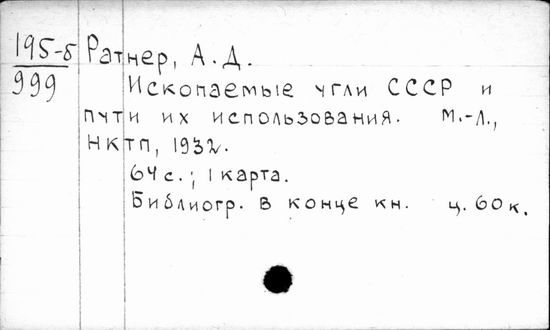 195-б Ратнер, А.Д.
999
Ископаемые угли СССР и
пути их использования. М.-Л.,
НКТП, 1932.
64 с.; 1 карта.
Библиогр. в конце кн. ц. 60 к.